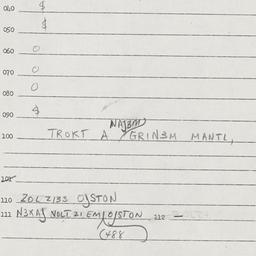 040 $
050 $
060 0
070 0
080 0
090 $
NAJ3M
100 TROKT A GRIN3M MANTL,
105
110 ZOL Z133 OJSTON
111 N3XAJ VOLT 21 EM OJSTON 112 —
(488